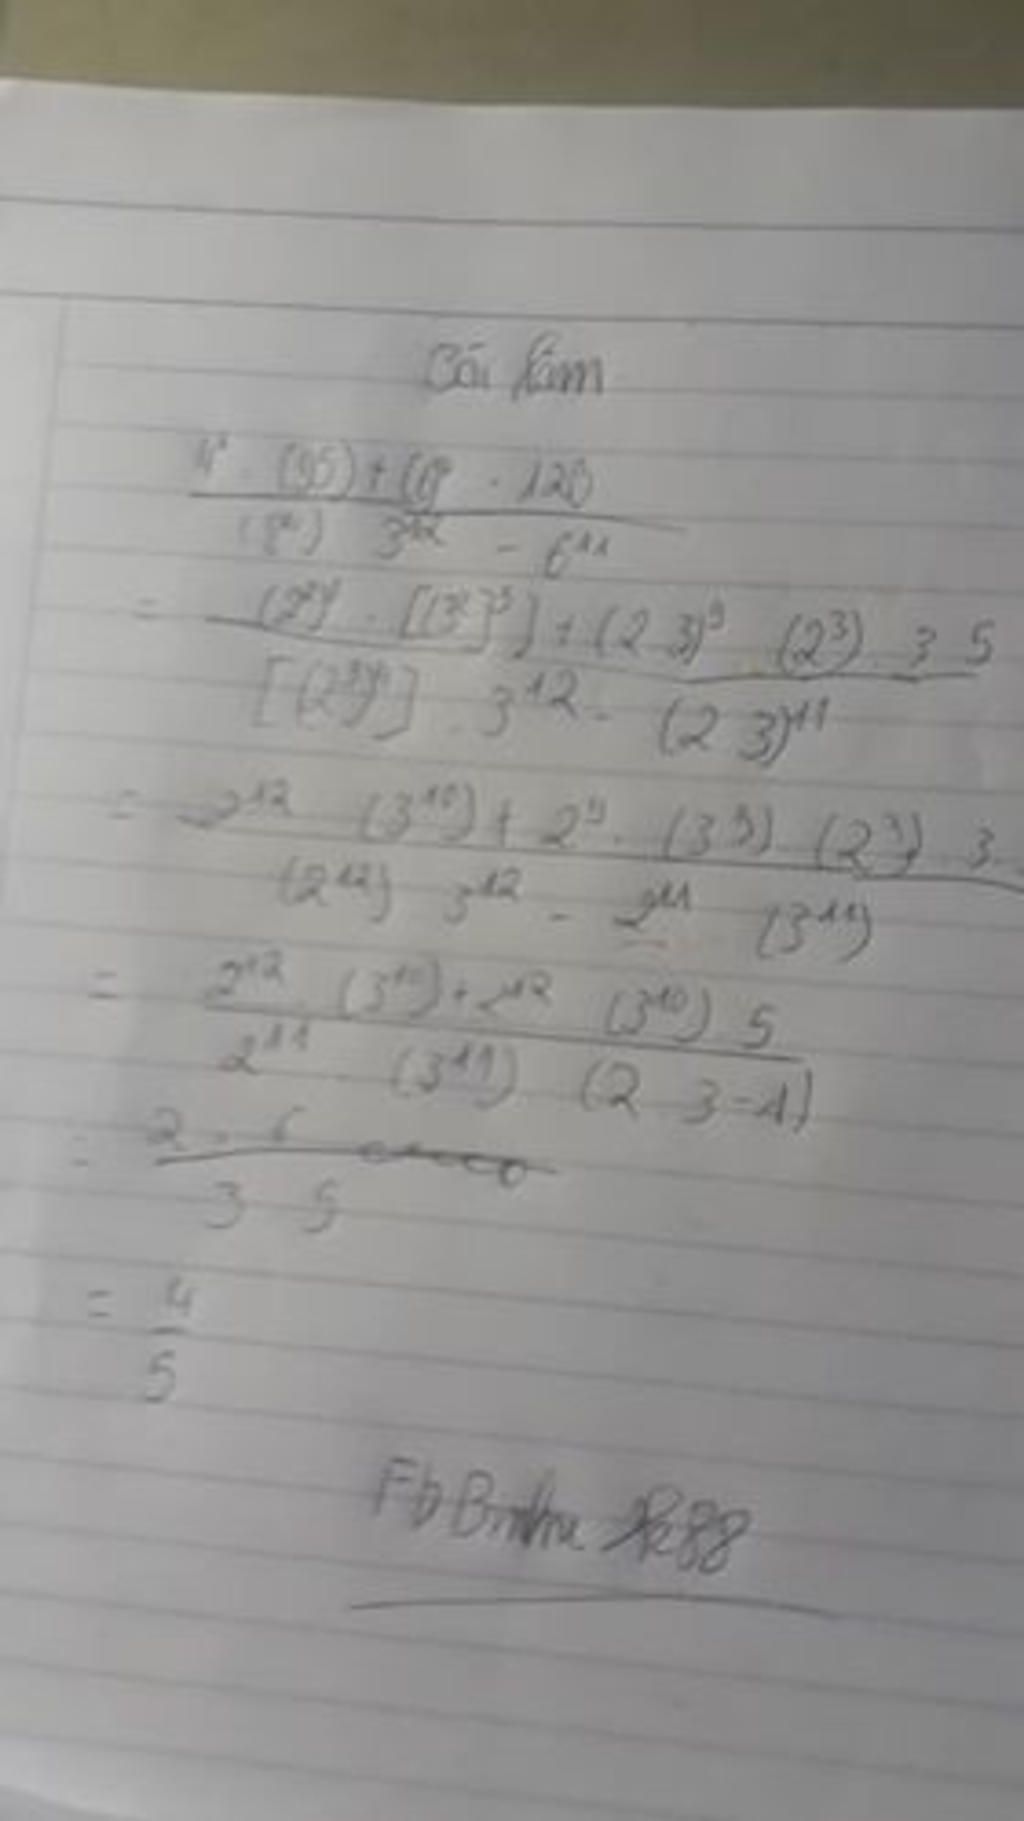 Bài làm
4⁶ . (9⁵) + (6⁹ . 120)
(8⁴) 3¹² - 6¹¹
= (2²)⁶ . [(3²)⁵] + (2 3)⁹ (2³) . 3 5
[(2³)⁴] . 3¹² - (2 3)¹¹
= 2¹² (3¹⁰) + 2⁹ . (3⁹) (2³) 3
(2¹²) 3¹² - 2¹¹ (3¹¹)
= 2¹² (3¹⁰) + 2¹² (3¹⁰) 5
2¹¹ (3¹¹) (2 3 - 1)
= 2 . 6
3 5
= 4
5
Fb
88